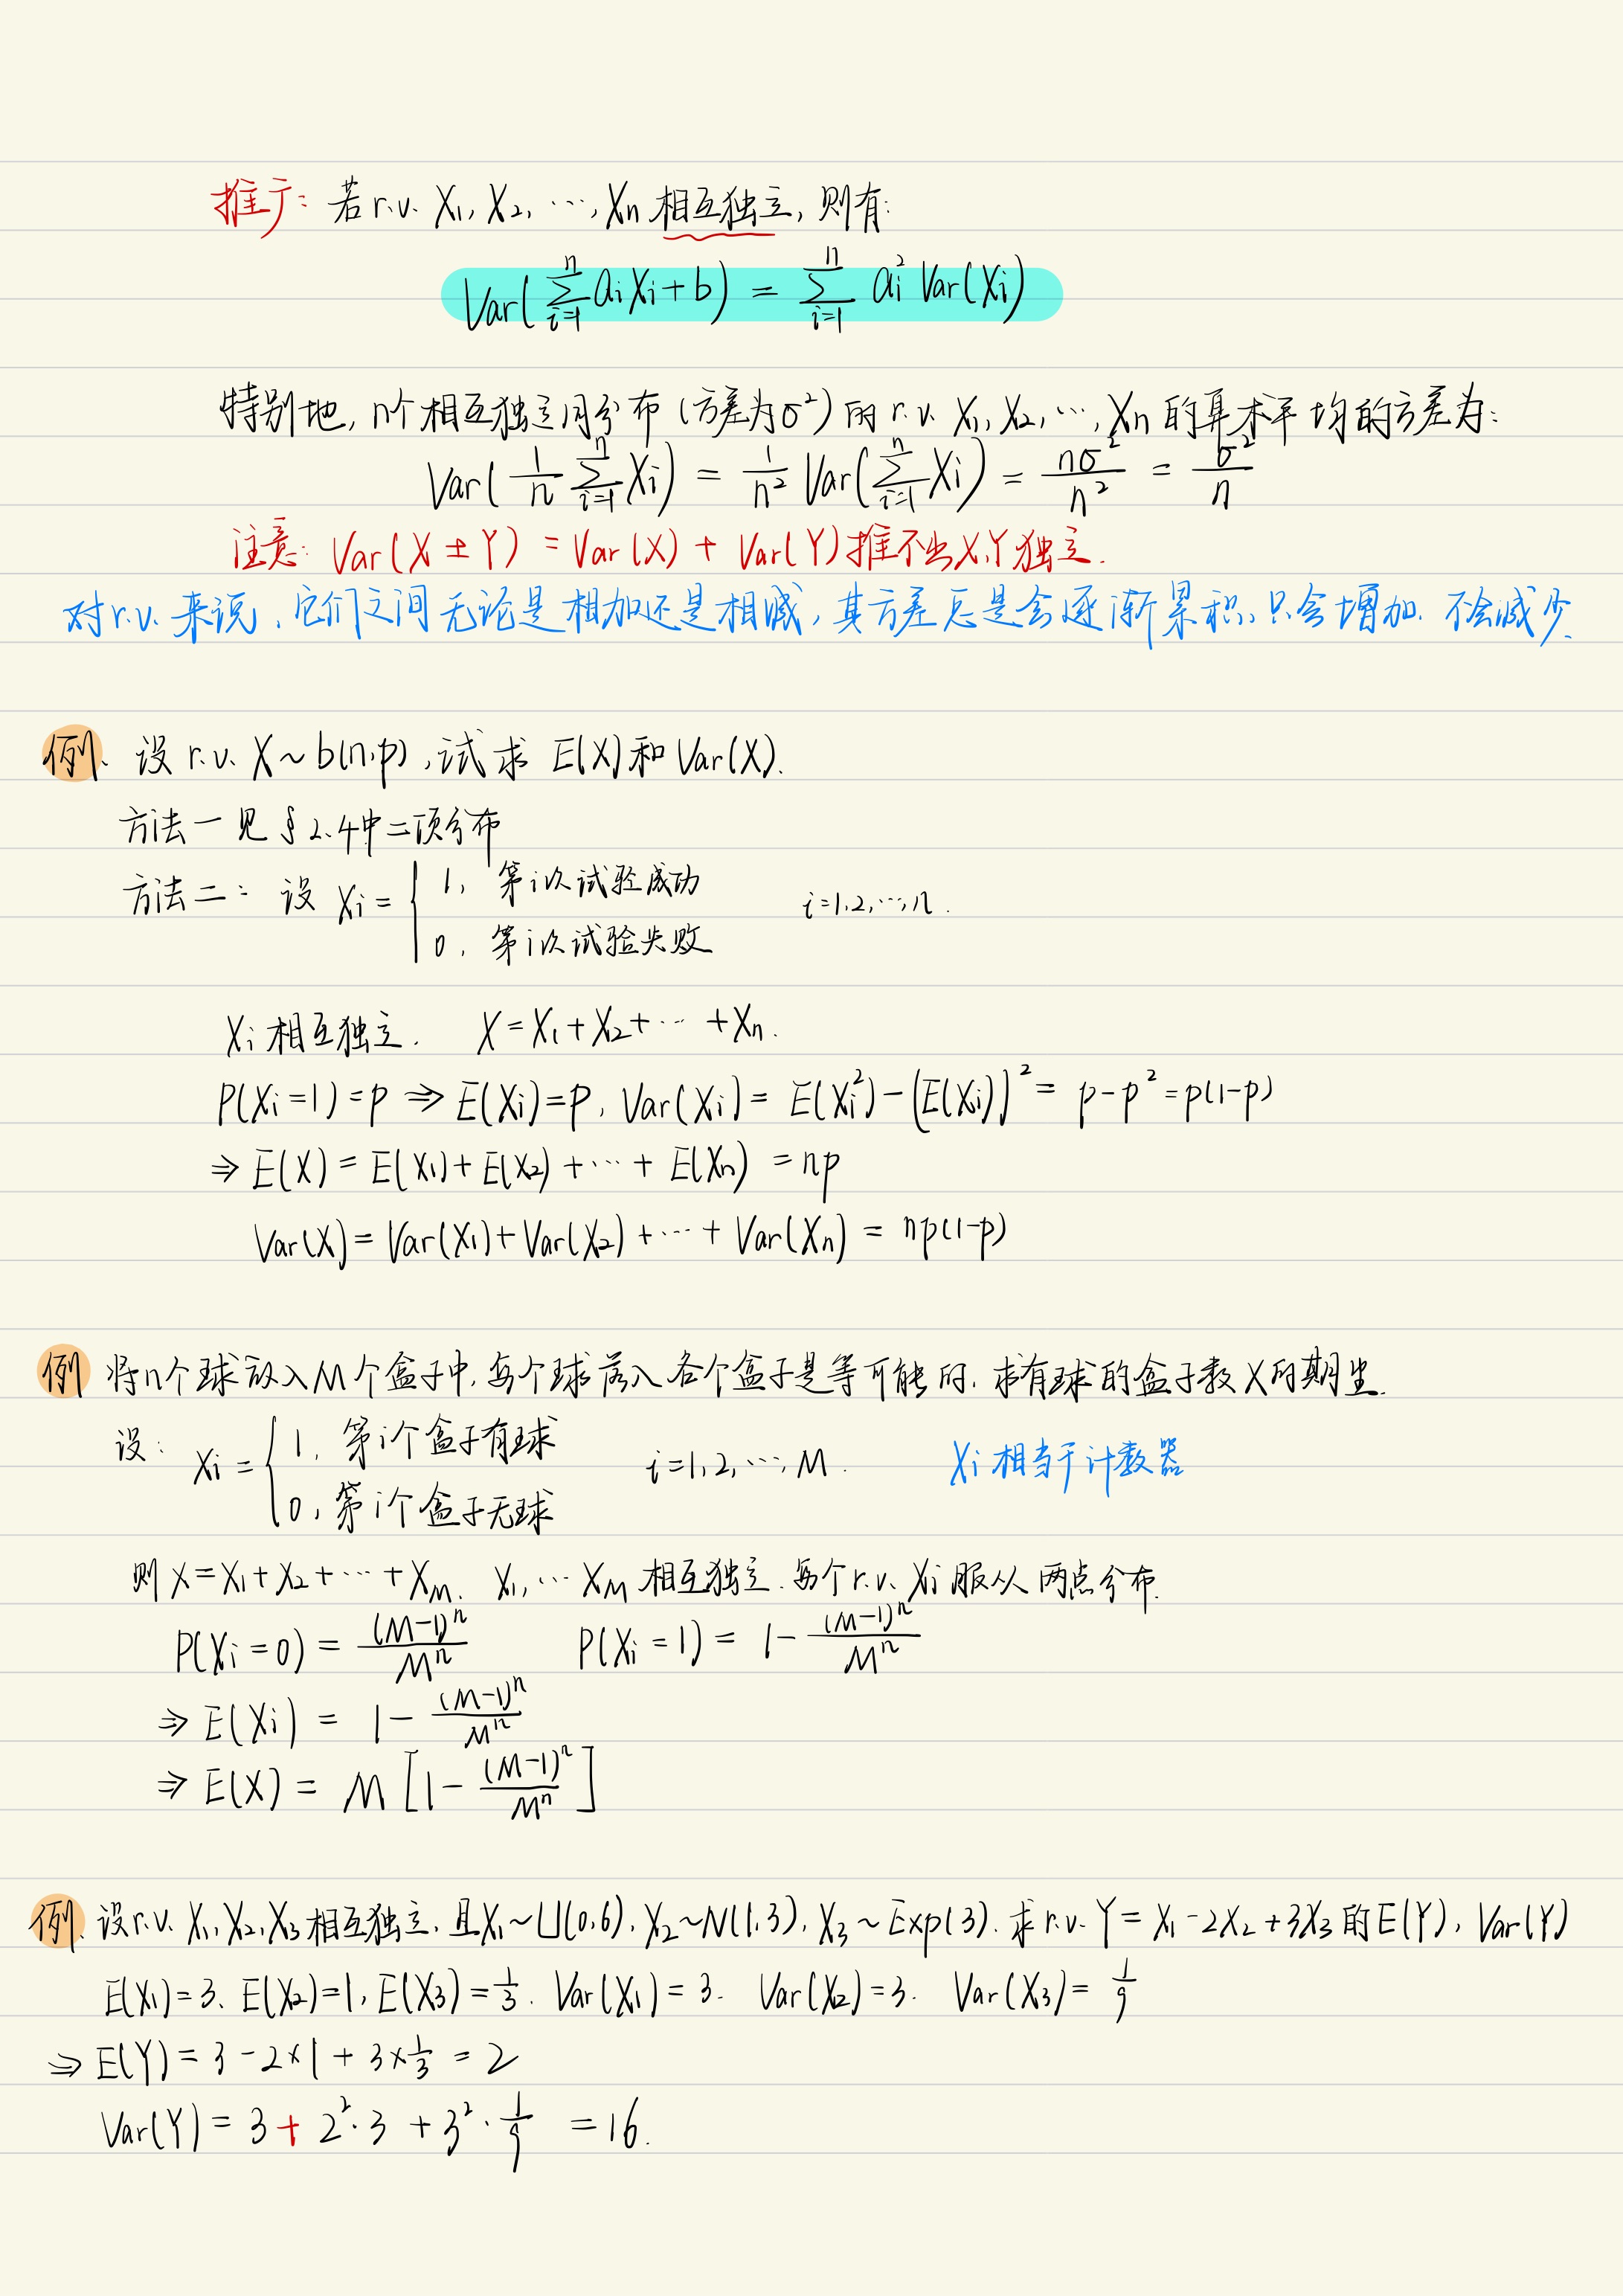 推广: 若 r.v. X₁, X₂, ⋯, Xn 相互独立, 则有:
Var(∑_{i=1}^{n} aᵢXᵢ + b) = ∑_{i=1}^{n} aᵢ² Var(Xᵢ)
特别地, n个相互独立同分布 (方差为σ²) 的 r.v. X₁, X₂, ⋯, Xn 的算术平均的方差为:
Var(1/n ∑_{i=1}^{n} Xᵢ) = 1/n² Var(∑_{i=1}^{n} Xᵢ) = nσ²/n² = σ²/n
注意: Var(X ± Y) = Var(X) + Var(Y) 推不出 X,Y 独立.
对 r.v. 来说, 它们之间无论是相加还是相减, 其方差总是会逐渐累积, 只会增加. 不会减少.
例. 设 r.v. X ~ b(n,p), 试求 E(X) 和 Var(X).
方法一 见 §2.4中二项分布
方法二: 设 Xᵢ = { 1, 第i次试验成功
0, 第i次试验失败 i=1,2,⋯,n.
Xᵢ 相互独立. X = X₁ + X₂ + ⋯ + Xn.
P(Xᵢ=1) = p ⇒ E(Xᵢ) = p, Var(Xᵢ) = E(Xᵢ²) − [E(Xᵢ)]² = p − p² = p(1-p)
⇒ E(X) = E(X₁) + E(X₂) + ⋯ + E(Xn) = np
Var(X) = Var(X₁) + Var(X₂) + ⋯ + Var(Xn) = np(1-p)
例 将n个球放入M个盒子中, 每个球落入各个盒子是等可能的. 求有球的盒子数X的期望.
设: Xᵢ = { 1, 第i个盒子有球 i=1,2,⋯,M. Xᵢ 相当于计数器
0, 第i个盒子无球
则 X = X₁ + X₂ + ⋯ + X_M. X₁, ⋯ X_M 相互独立. 每个 r.v. Xᵢ 服从两点分布.
P(Xᵢ=0) = (M-1)ⁿ/Mⁿ P(Xᵢ=1) = 1 − (M-1)ⁿ/Mⁿ
⇒ E(Xᵢ) = 1 − (M-1)ⁿ/Mⁿ
⇒ E(X) = M [1 − (M-1)ⁿ/Mⁿ]
例. 设 r.v. X₁, X₂, X₃ 相互独立, 且 X₁ ~ U(0,6), X₂ ~ N(1,3), X₃ ~ Exp(3). 求 r.v. Y = X₁ − 2X₂ + 3X₃ 的 E(Y), Var(Y)
E(X₁) = 3, E(X₂) = 1, E(X₃) = 1/3. Var(X₁) = 3. Var(X₂) = 3. Var(X₃) = 1/9
⇒ E(Y) = 3 − 2×1 + 3×1/3 = 2
Var(Y) = 3 + 2²·3 + 3²·1/9 = 16.